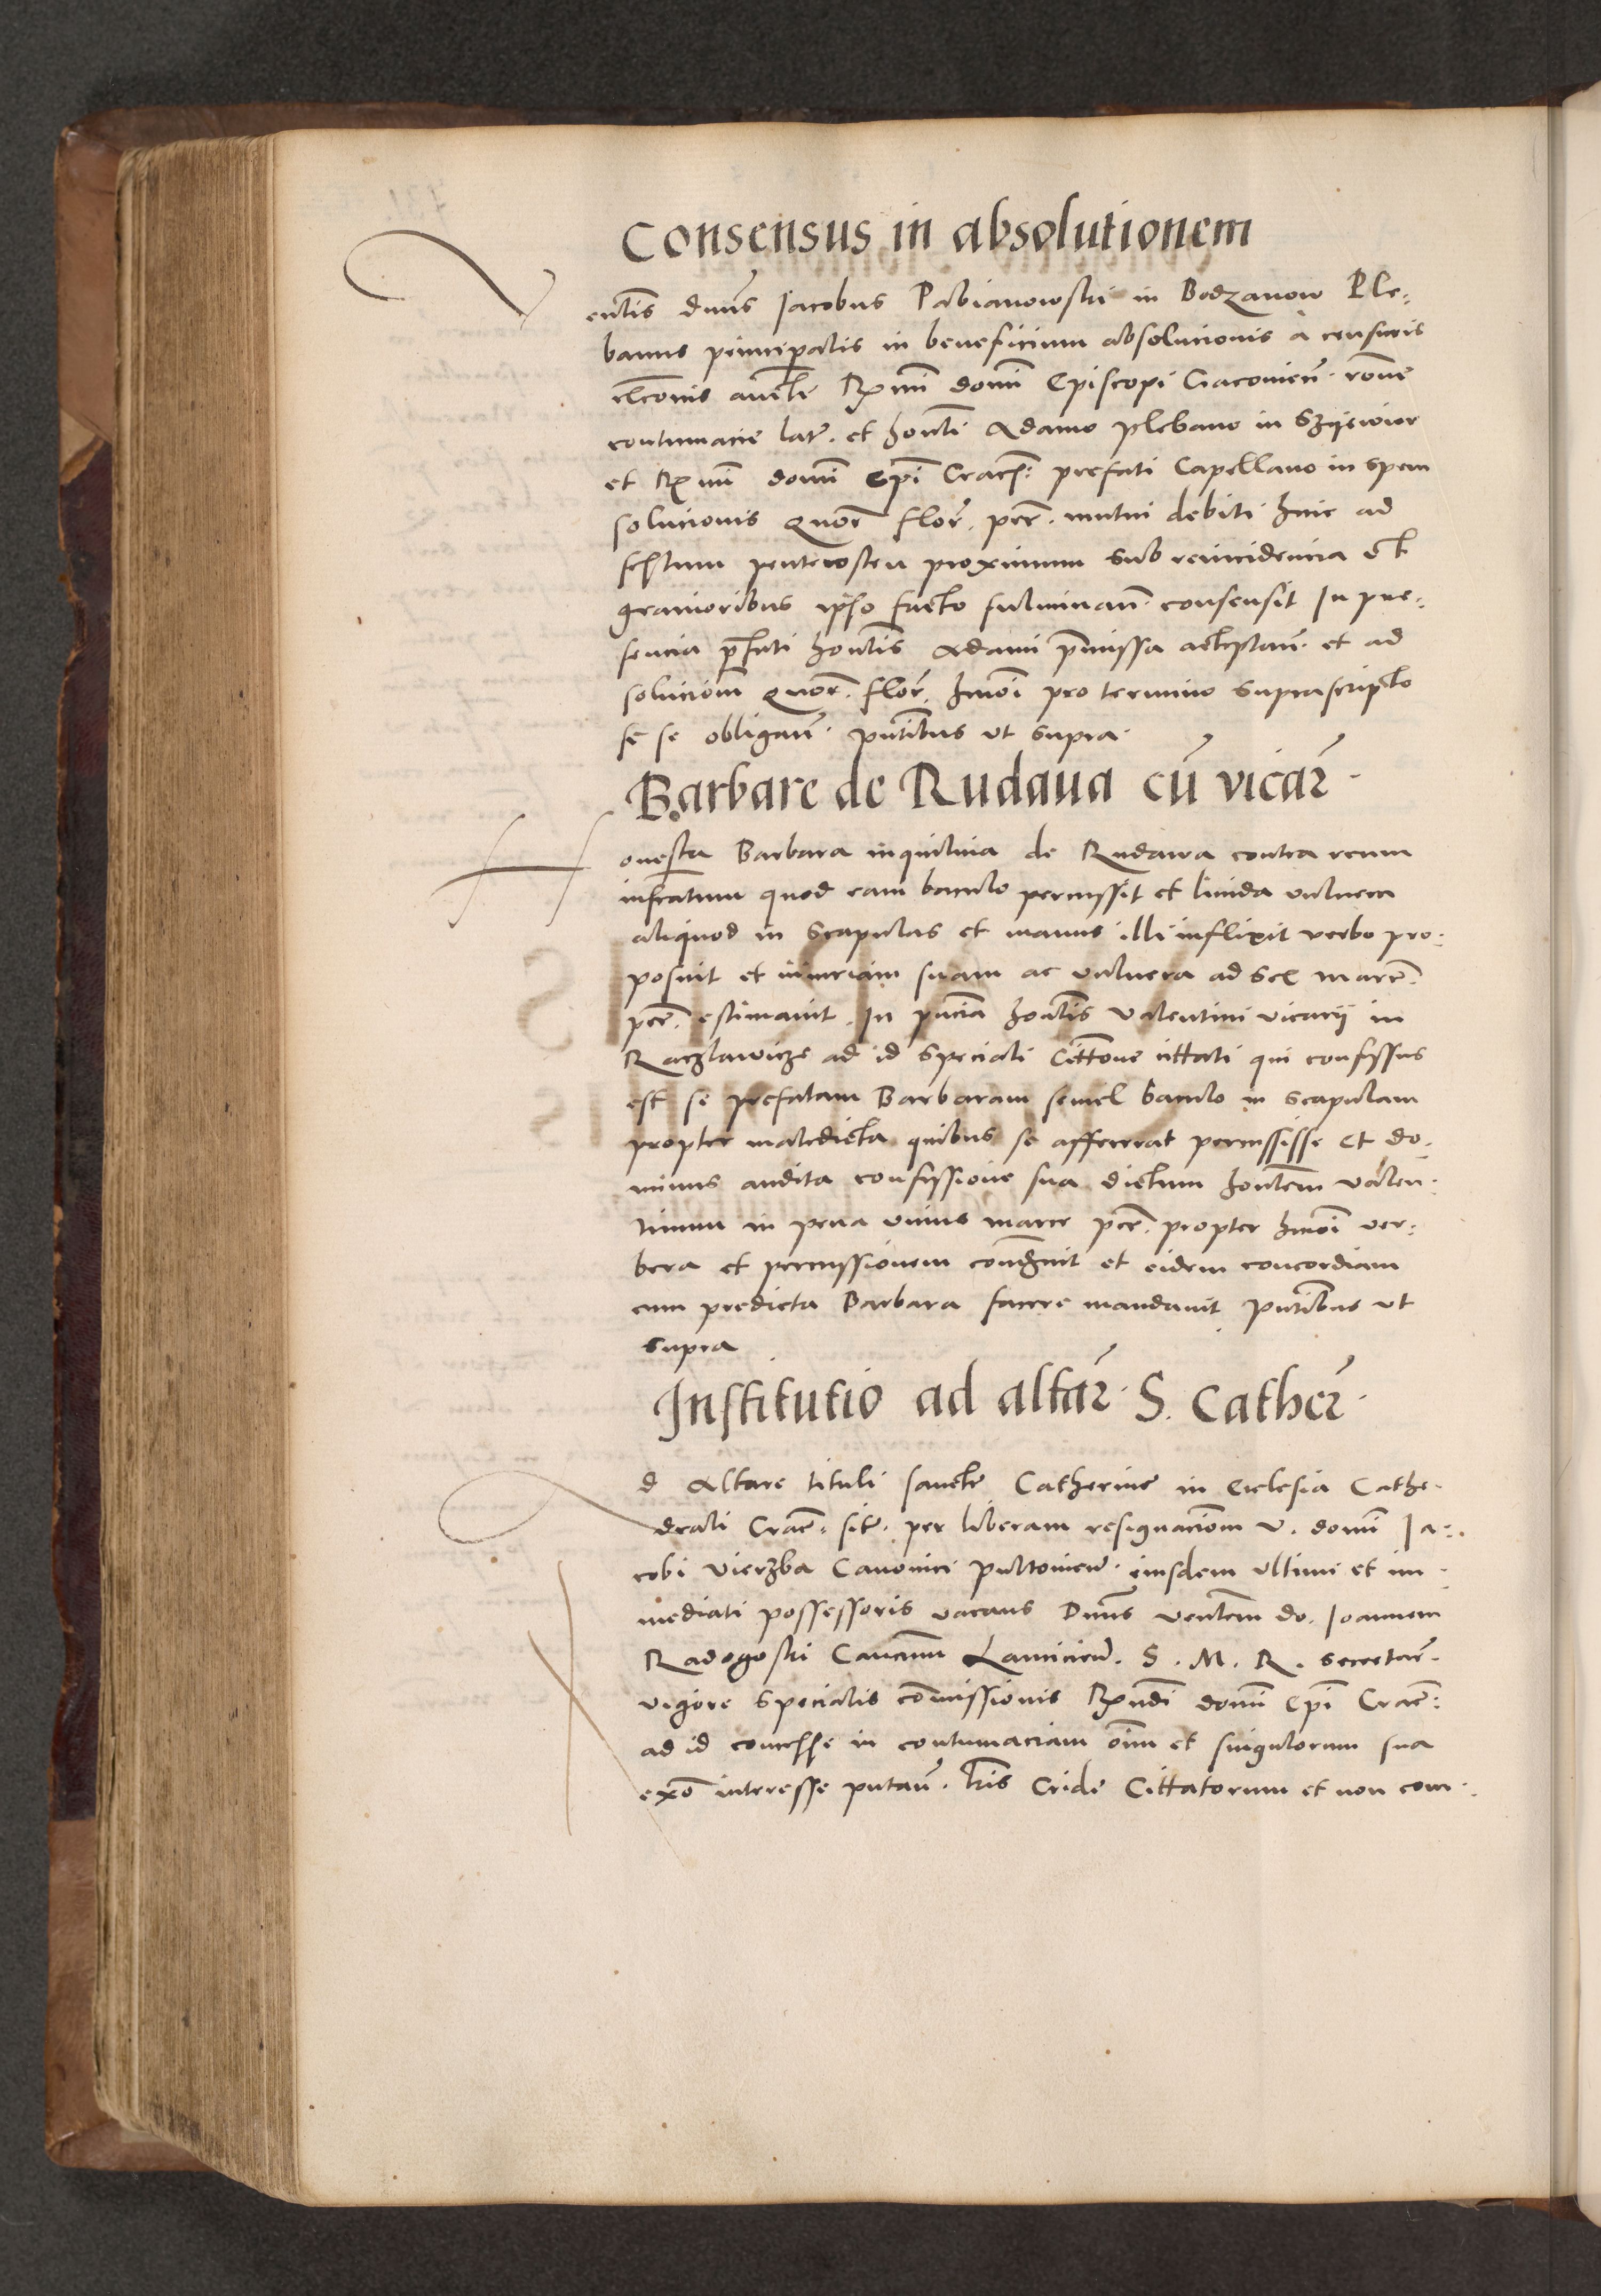 Consensus in absolutionem
Ventis̄ dnūs Jacobus Pabianowski in Bodzanow Ple-
banus principalis in beneficium absolucionis a censuris
aucte Rxmi domī Episcopi Cracovien̄. rōne
contumacie lat̄. et hontī Adamo plebano in
et Rxmī domī Epī Cracn̄: prefati Capellano in spem
solucionis quor̄ flor̄. per̄. mutui debiti hinc ad
festum pentecosten proximum sub reincidencia et
gravioribus ipso facto fulminan̄. consensit In pre-
sencia pfati hontis̄ Adami pmissa acceptan̄. et ad
soluciom̄ quor̄. flor̄. hmoī pro termino suprascripto
se se obligan̄. pntibus ut supra.
Barbare de Rudaua cū vicar̄.
Honesta Barbara inquilina de Rudawa contra reum
infratum quod eam baculo percussit et livida vulnera
aliquod in scapulas et manus illi inflixit verbo pro-
posuit et iniuriam suam ac vulnera ad sex marc̄.
pec̄. estimavit. In pnciā hontis̄ Valentini vicarii in
Raczlawicze ad id speciali Cittone cittati qui confessus
est se prefatam Barbaram semel baculo in scapulam
propter maledicta quibus se affecerat percussisse et do-
minus audita confessione sua dictum hontem̄ Valen-
tinum in pena unius marce pec̄. propter hmoī ver-
bera et percussionem condemnuit et eidem concordiam
cum predicta Barbara facere mandavit pntibus ut
supra
Institutio ad altar̄. S. Cather̄.
Ad Altare tituli sancte Catherine in Ecclesia Cathe-
drali Crac̄. sit̄. per liberam resignaciom̄ V. domī Ja-
cobi Vierzba Canonici pultovien̄. eiusdem ultimi et im-
mediati possessoris vacans Dnūs Ventem̄ do. Joannem
Radogoski Cancum̄ Lancicien̄. S. M. R. secretar̄.
vigore specialis commissionis Rxndī domī Epī Crac̄:
ad id concesse in contumaciam oīm et singulorum sua
exō interesse putan̄. lris Cride Cittatorum et non com-